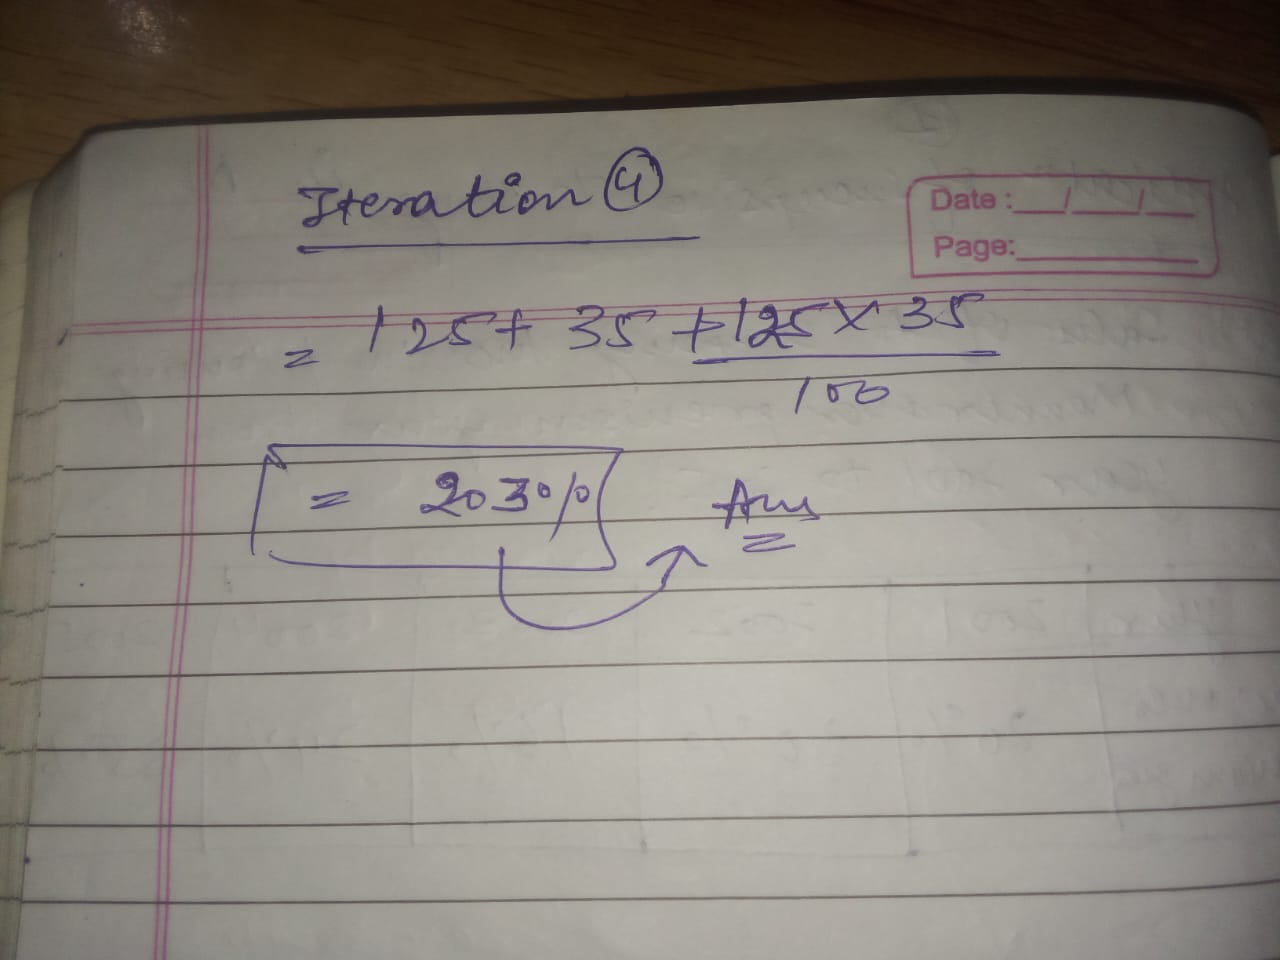 Iteration 4
Date : __/__/__
Page: ______
= 125 + 35 + 125 × 35
100
= 203% Ans